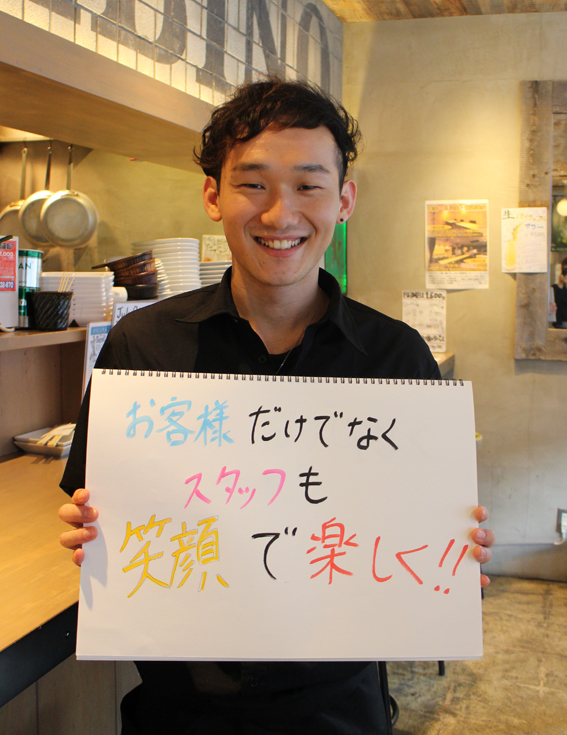 お客様だけでなく
スタッフも
笑顔で楽しく!!